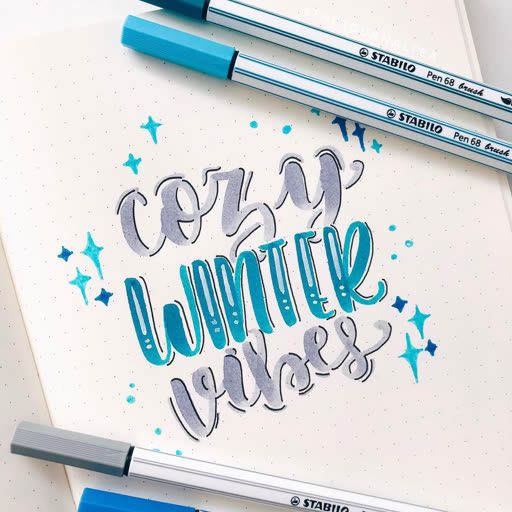 STABILO Pen 68 brush
STABILO Pen 68 brush
cozy
WINTER
vibes
STABILO